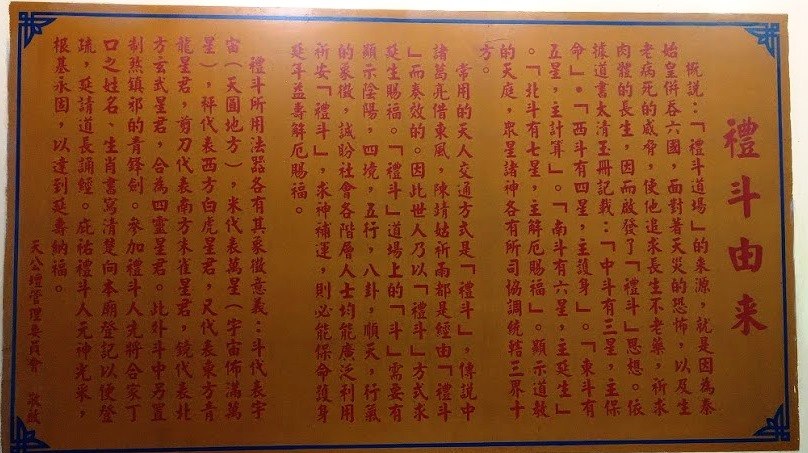 禮斗由來
概說：「禮斗道場」的來源，就是因為秦
始皇併吞六國，面對著天災的恐怖，以及生
老病死的威脅，使他追求長生不老藥，祈求
肉體的長生，因而啟發了「禮斗」思想。依
據道書太清玉冊記載：「中斗有三星，主保
命」。「西斗有四星，主護身」。「東斗有
五星，主計算」。「南斗有六星，主延生」
。「北斗有七星，主解厄賜福」。顯示道教
的天庭，眾星諸神各有所司協調統轄三界十
方。
常用的天人交通方式是「禮斗」，傳說中
諸葛亮借東風，陳靖姑祈雨都是經由「禮斗
」而奏效的。因此世人乃以「禮斗」方式求
延生賜福。「禮斗」道場上的「斗」需要有
顯示陰陽，四境，五行，八卦，順天，行氣
的象徵，誠盼社會各階層人士均能廣泛利用
祈安「禮斗」，求神補運，則必能保命護身
延年益壽解厄賜福。
禮斗所用法器各有其象徵意義：斗代表宇
宙（天圓地方），米代表萬星（宇宙佈滿萬
星），秤代表西方白虎星君，尺代表東方青
龍星君，剪刀代表南方朱雀星君，鏡代表北
方玄武星君，合為四靈星君。此外斗中另置
制煞鎮邪的青鋒劍。參加禮斗人先將合家丁
口之姓名、生肖書寫清楚向本廟登記以便登
疏，延請道長誦經。庇祐禮斗人元神光彩，
根基永固，以達到延壽納福。
天公壇管理委員會　敬啟